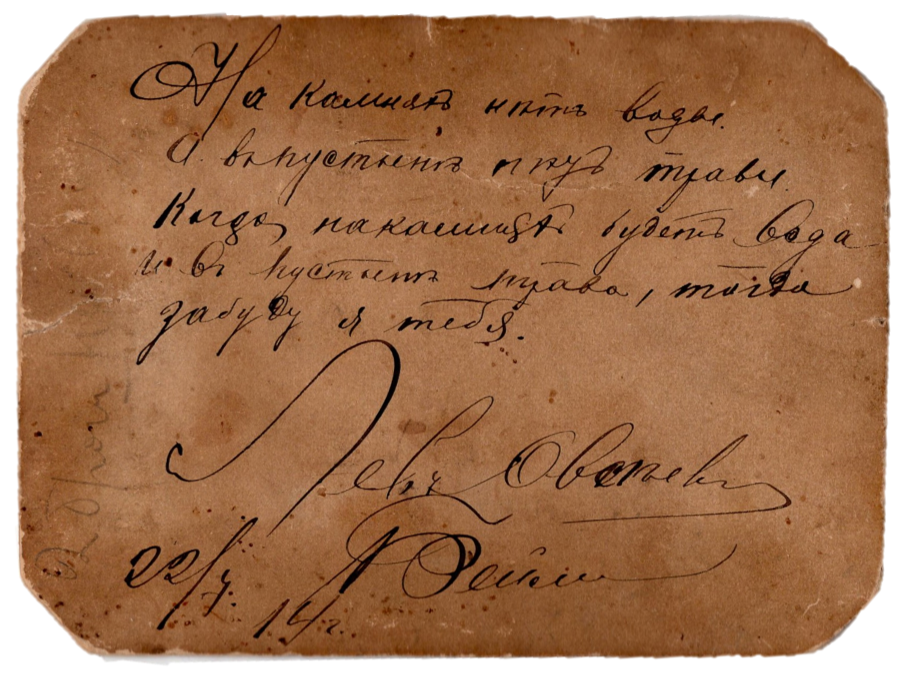 На камняхъ нѣтъ воды.
А въ пустынѣ нѣтъ травы.
Когда на камняхъ будетъ вода
И въ пустынѣ трава, тогда
забуду я тебя.
Левъ
22/